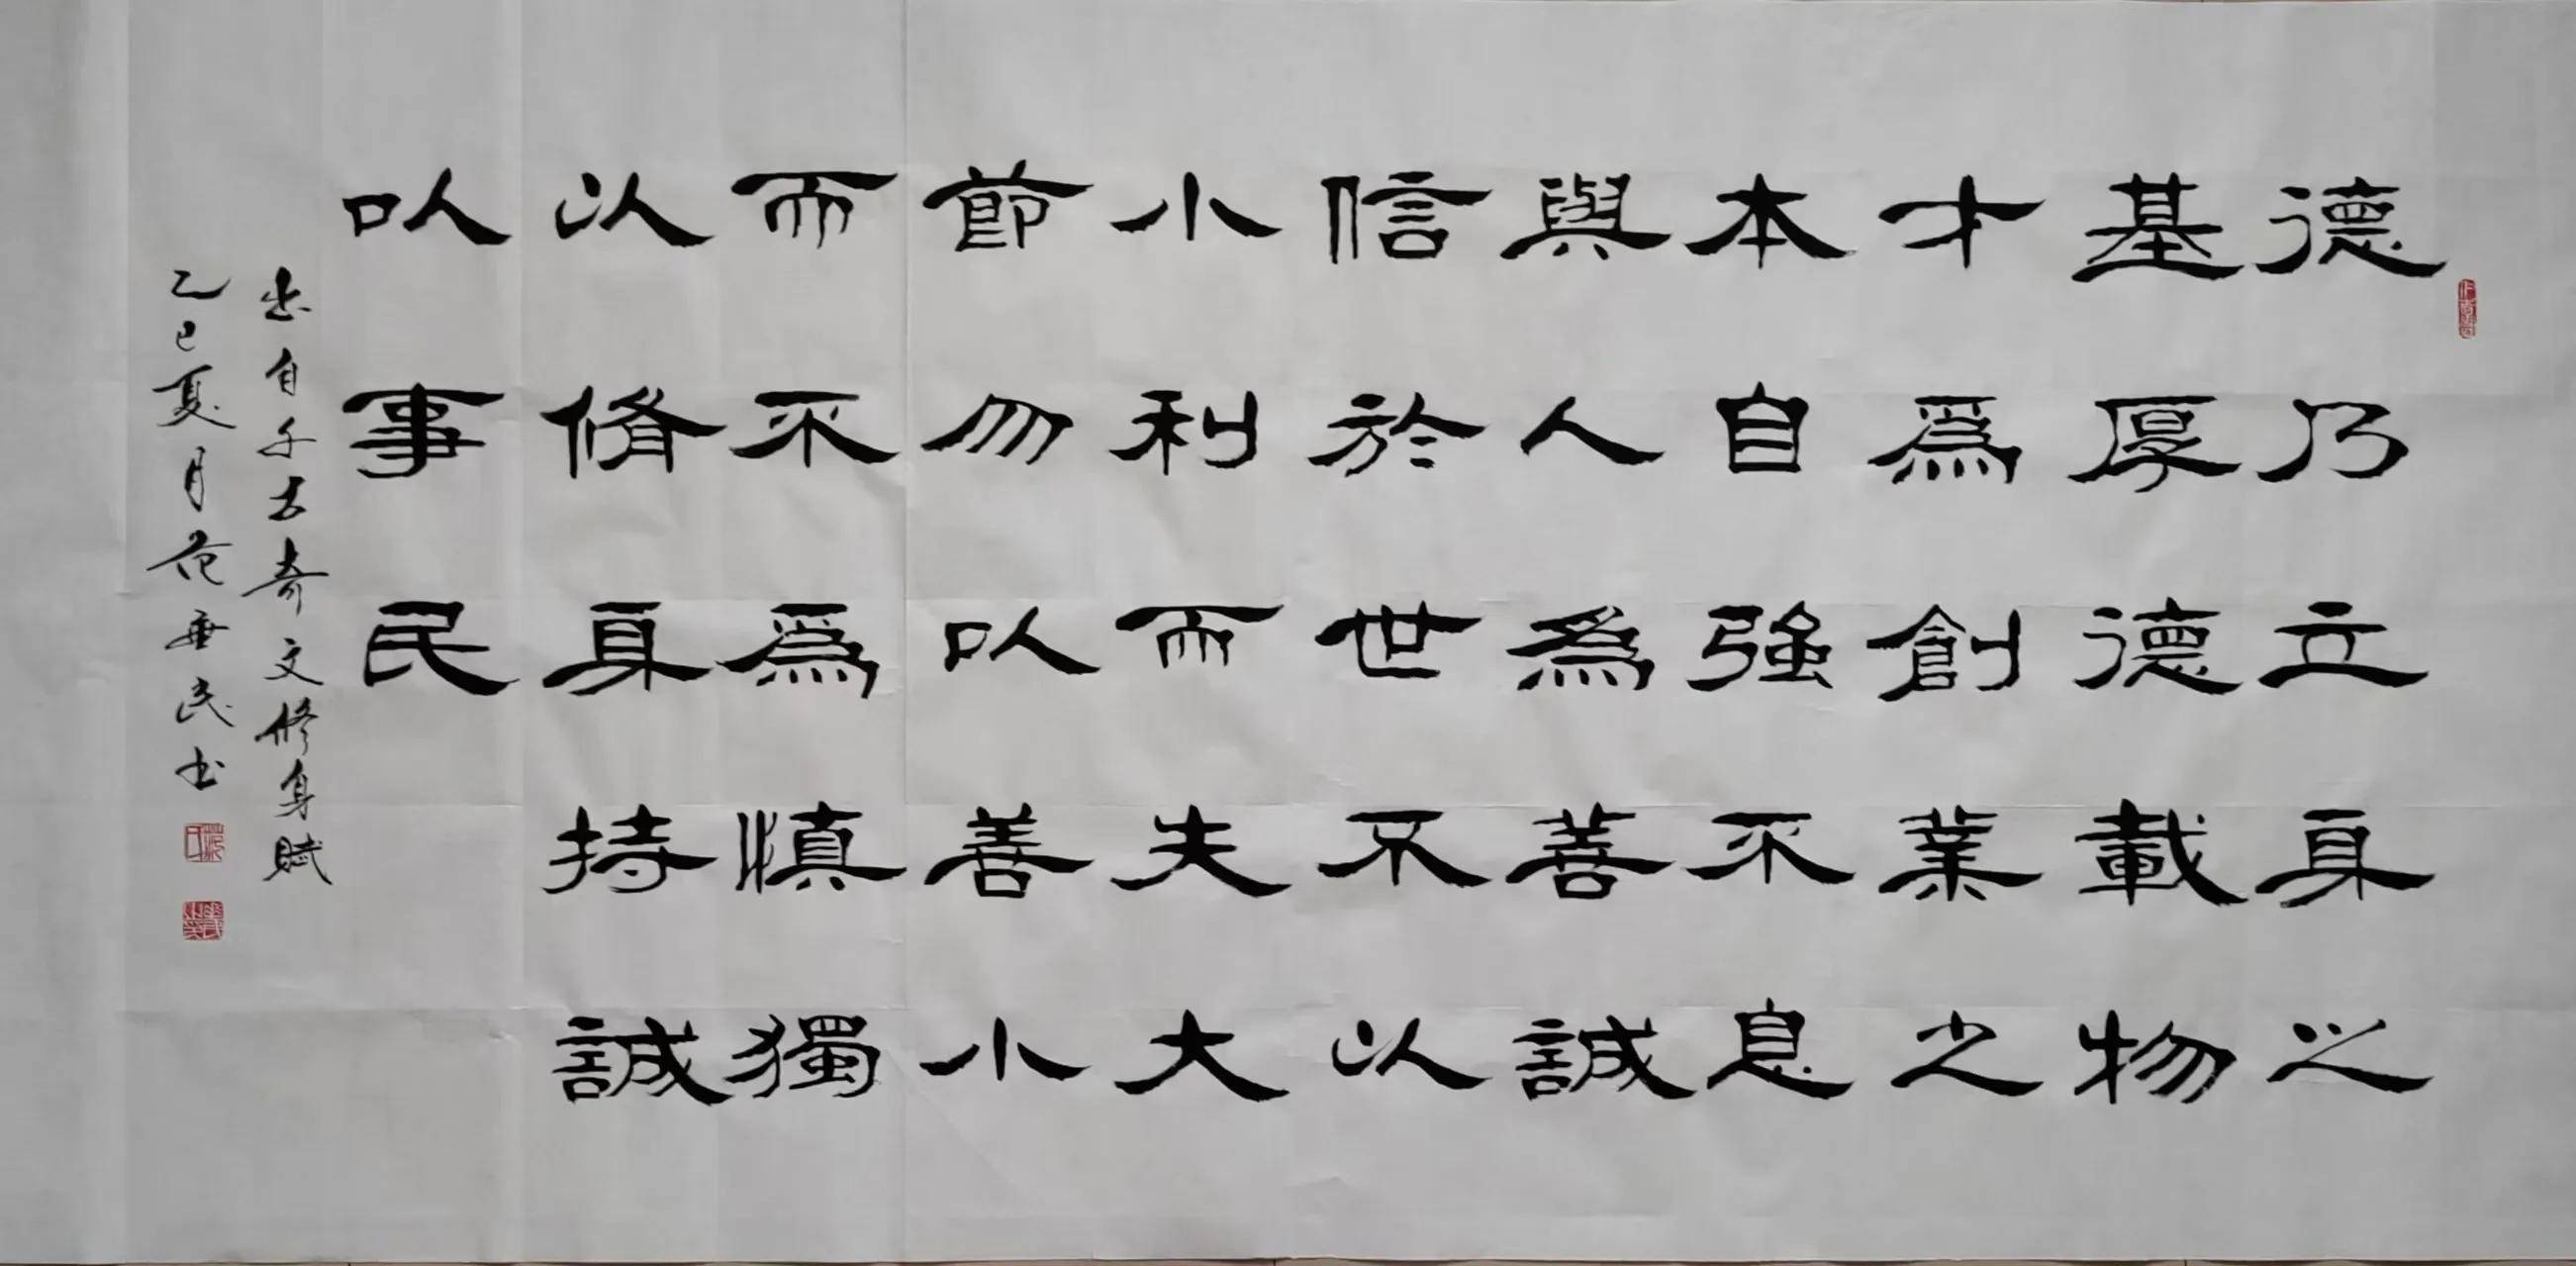 德乃立身之
基厚德載物
才為創業之
本自強不息
與人為善誠
信於世不以
小利而失大
節勿以善小
而不為慎獨
以脩身持誠
以事民
出自千古奇文修身賦
乙巳夏月范垂民书